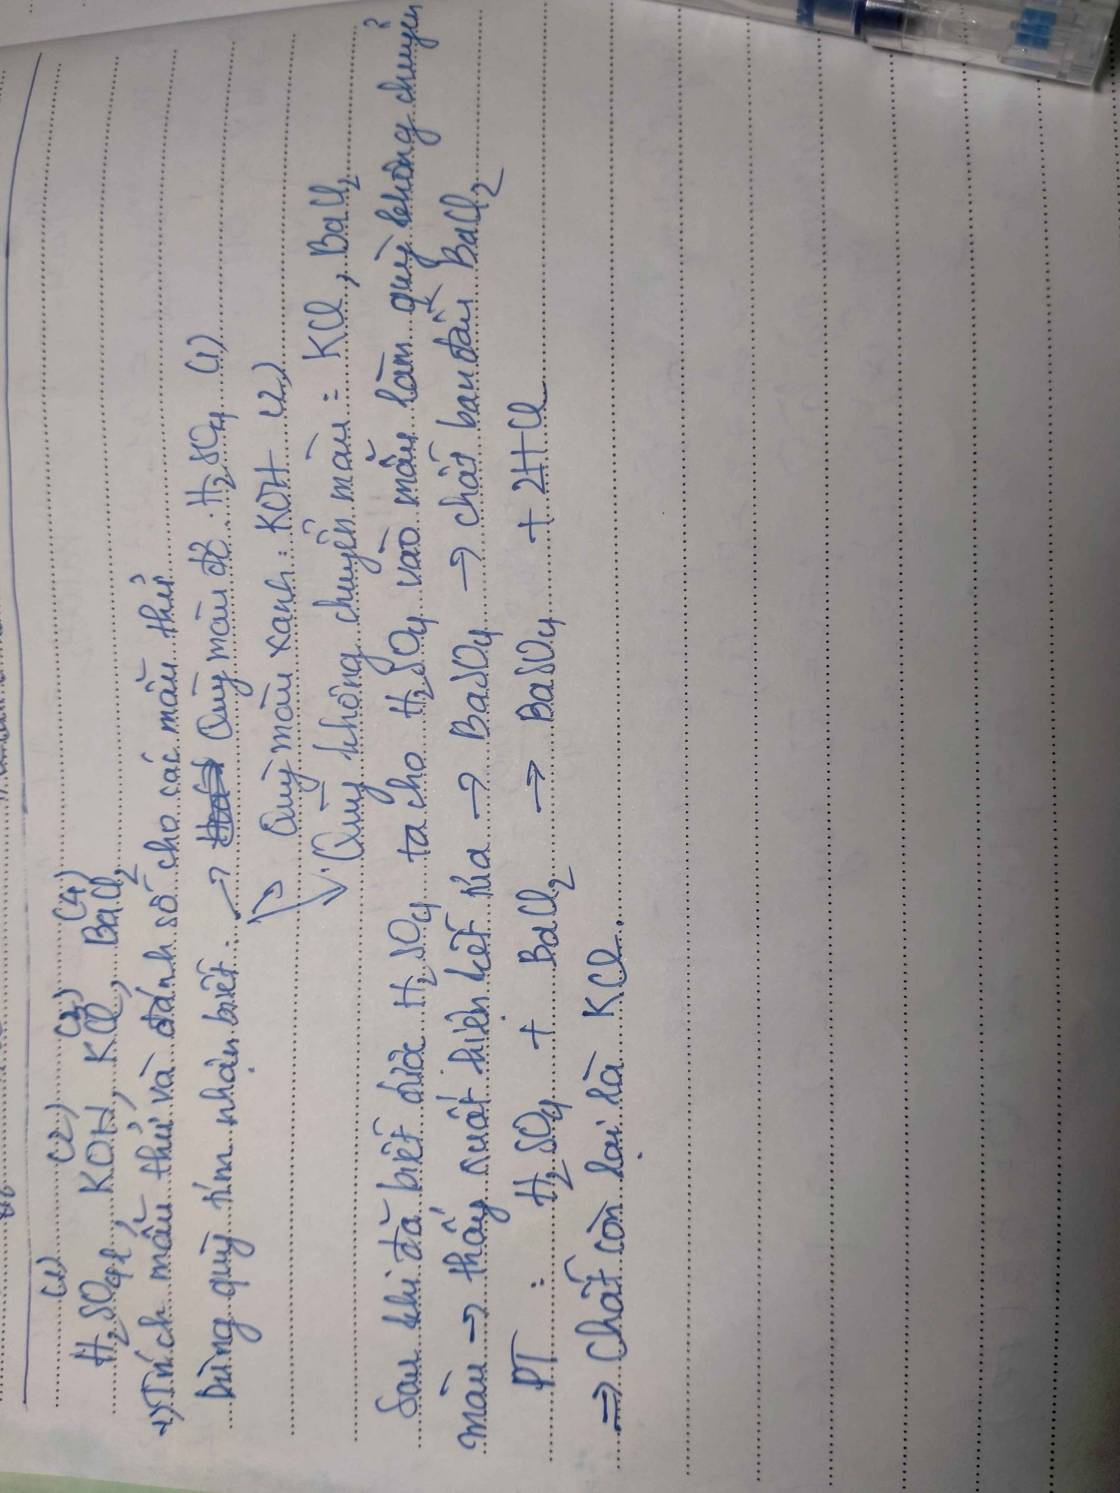 (1) (2) (3) (4)
H2SO4, KOH, KCl, BaCl2
Trích mẫu thử và đánh số cho các mẫu thử
Dùng quỳ tím nhận biết. → Quỳ màu đỏ: H2SO4 (1)
Quỳ màu xanh: KOH (2)
Quỳ không chuyển màu: KCl, BaCl2
Sau khi đã biết được H2SO4 ta cho H2SO4 vào mẫu làm quỳ không chuyển
màu → thấy suất hiện kết tủa → BaSO4 → chất ban đầu BaCl2
PT : H2SO4 + BaCl2 → BaSO4 + 2HCl
⇒ Chất còn lại là KCl.